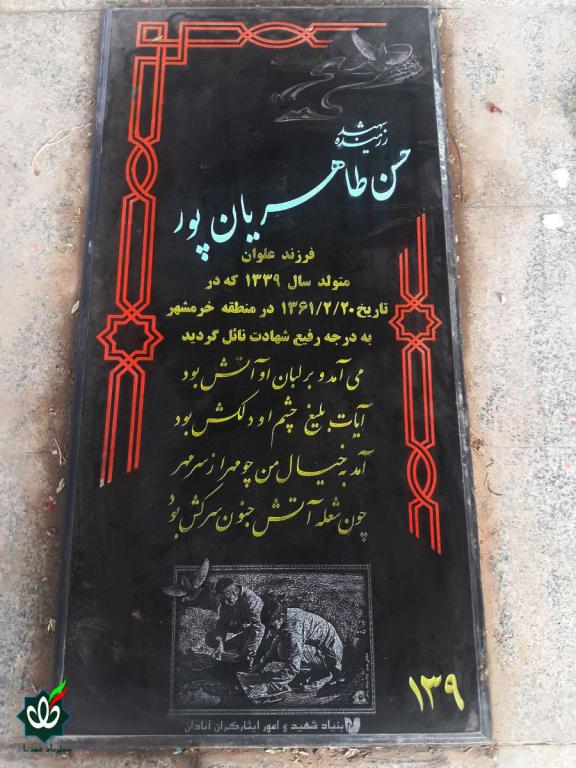 شهید
رزمنده
حسن طاهریان پور
فرزند علوان
متولد سال ۱۳۳۹ که در
تاریخ ۱۳۶۱/۲/۲۰ در منطقه خرمشهر
به درجه رفیع شهادت نائل گردید
می آمد و بر لبان او آتش بود
آیات بلیغ چشم او دلکش بود
آمد به خیال من چو مهر از سر مهر
چون شعله آتش جنون سرکش بود
بنیاد شهید و امور ایثارگران آبادان
۱۳۹